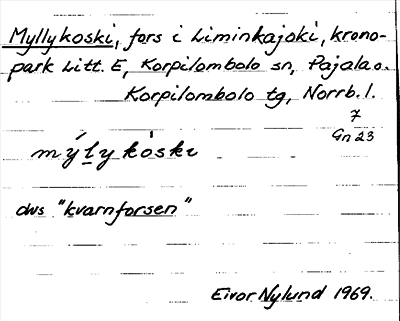 Myllykoski, fors i Liminkajoki, krono-
park Litt. E, Korpilombolo sn, Pajala o.
Korpilombolo tg, Norrb. l.
7
Gn 23
mýlykòski
dvs "kvarnforsen"
Eivor Nylund 1969.